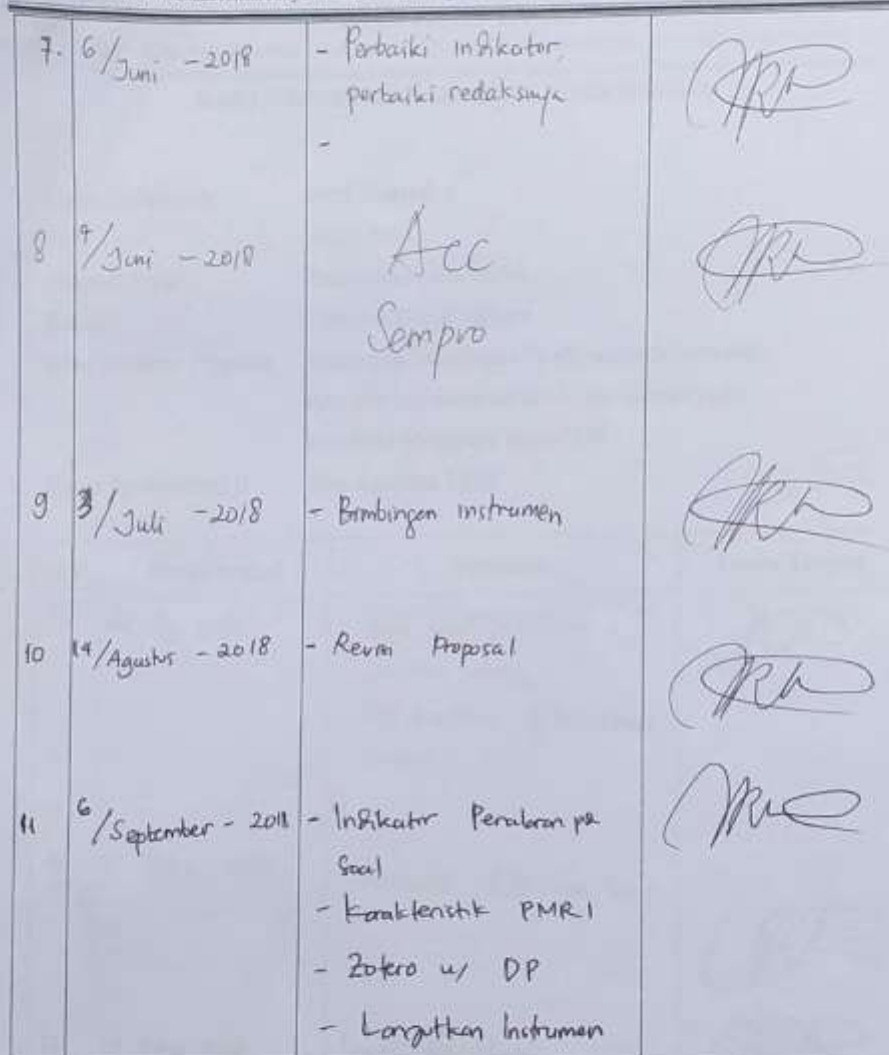 7. 6/Juni - 2018 - Perbaiki indikator,
perbaiki redaksinya
-
8 /Juni - 2018 Acc
Sempro
9 3/Juli - 2018 - Bimbingan instrumen
10 14/Agustus - 2018 - Revisi Proposal
11 6/September - 2018 - Indikator
Soal
- Karakteristik PMRI
- Zotero u/ DP
- Lanjutkan Instrumen